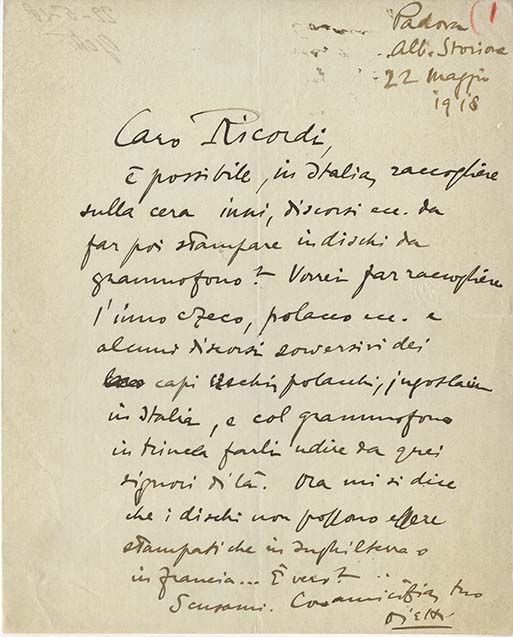 Padova (1
Alb. Storione
22 maggio
1918
Caro Ricordi,
È possibile, in Italia, raccogliere
sulla cera inni, discorsi ecc. da
far poi stampare in dischi da
grammofono? Vorrei far raccogliere
l'inno czeco, polacco ecc. e
alcuni discorsi sovversivi dei
capi czechi, polacchi, jugoslavi
in Italia, e col grammofono
in trincea farli udire da quei
signori di là. Ora mi si dice
che i dischi non possono essere
stampati che in Inghilterra o
in Francia... È vero?
Scusami. Con amicizia, tuo
Ojetti